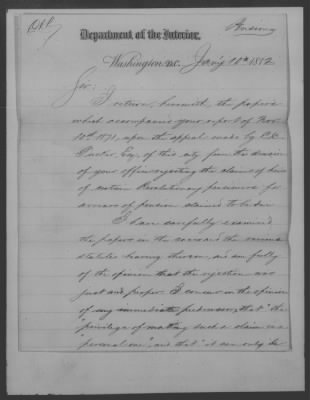 Pensions
Department of the Interior,
Washington D.C. Jan'y 10th 1872
Sir:
I return, herewith, the papers
which accompanied your report of Nov.
10th 1871, upon the appeal made by
Esq. of this city from the decision
of your office rejecting the claims of heirs
of certain Revolutionary pensioners for
arrears of pension claimed to be due
I have carefully examined
the papers in the case and the various
statutes bearing thereon, and am fully
of the opinion that the rejection was
just and proper. I concur in the opinion
of my immediate predecessor, that "the
"privilege of making such a claim is a
"personal one", and that "it can only be